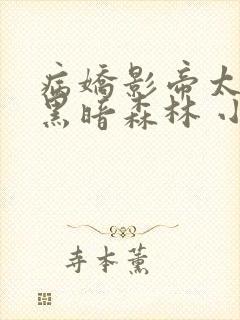 病娇影帝太
黑暗森林 小
寺本薰